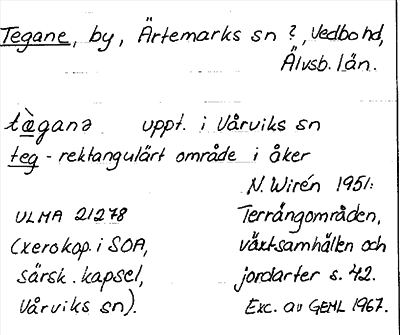 Tegane, by, Ärtemarks sn ?, Vedbo hd,
Älvsb. län.
tæ̀ganə uppt. i Vårviks sn
teg - rektangulärt område i åker
N. Wirén 1951:
ULMA 21278
(xerokop. i SOA,
särsk. kapsel,
Vårviks sn).
Terrängområden,
växtsamhällen och
jordarter s. 42.
Exc. av GEHL 1967.